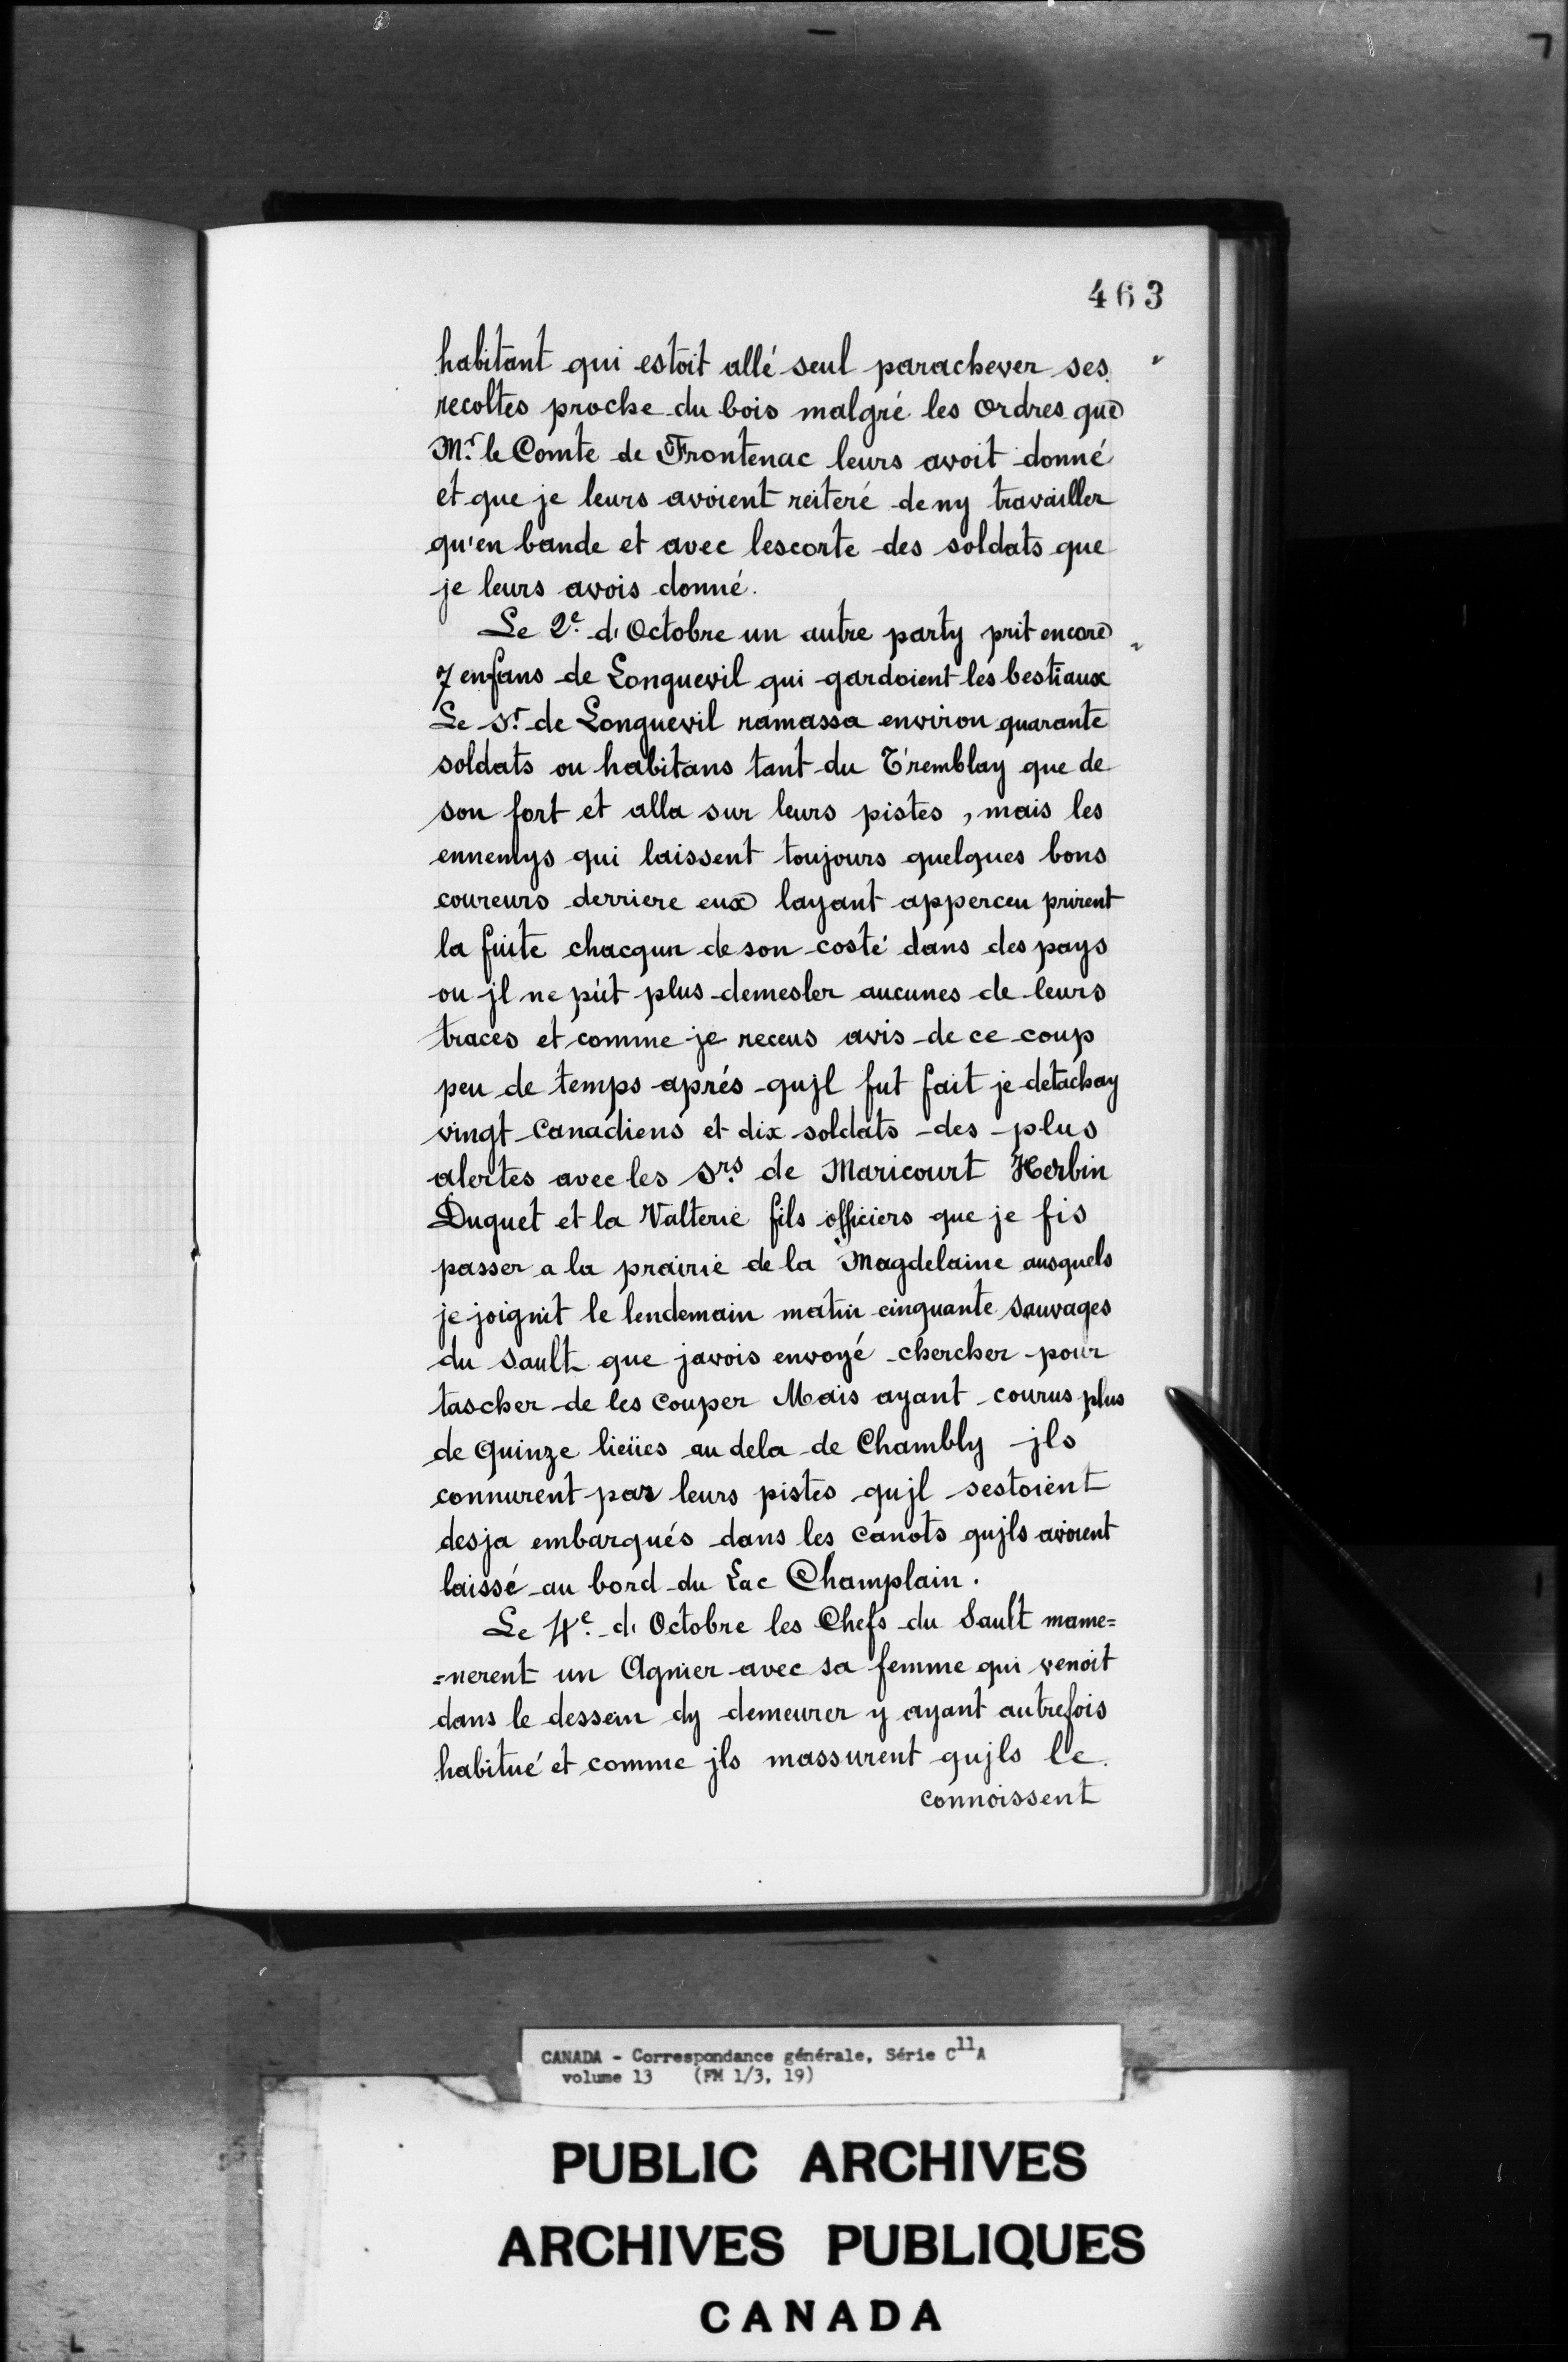 463
habitant qui estoit allé seul parachever ses
recoltes proche du bois malgré les Ordres que
Mr. le Comte de Frontenac leurs avoit donné
et que je leurs avoient reiteré de ny travailler
qu'en bande et avec lescorte des soldats que
je leurs avois donné.
Le 2e. d'Octobre un autre party prit encore
7 enfans de Longuevil qui gardoient les bestiaux
Le Sr. de Longuevil ramassa environ quarante
soldats ou habitans tant du Tremblay que de
son fort et alla sur leurs pistes, mais les
ennemys qui laissent toujours quelques bons
coureurs derriere eux layant apperceu prirent
la fuite chacqun de son costé dans des pays
ou jl ne pût plus demesler aucunes de leurs
traces et comme je receus avis de ce coup
peu de temps aprés qujl fut fait je detachay
vingt Canadiens et dix soldats des plus
alertes avec les Srs. de Maricourt Herbin
Duguet et la Valterie fils officiers que je fis
passer a la prairie de la Magdelaine ausquels
je joignit le lendemain matin cinquante Sauvages
du Sault que javois envoyé chercher pour
tascher de les couper Mais ayant courus plus
de Quinze lieües au dela de Chambly jls
connurent par leurs pistes qujl sestoient
desja embarqués dans les canots qujls avoient
laissé au bord du Lac Champlain.
Le 4e. d'Octobre les Chefs du Sault mame=
=nerent un Agnier avec sa femme qui venoit
dans le dessein dy demeurer y ayant autrefois
habitué et comme jls massurent qujls le
connoissent
CANADA - Correspondance générale, Série C11A
volume 13 (FM 1/3, 19)
PUBLIC ARCHIVES
ARCHIVES PUBLIQUES
CANADA